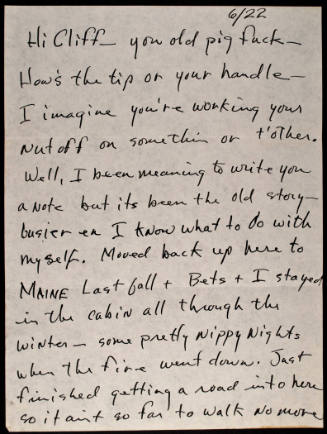 6/22
Hi Cliff— you old pig fuck—
How's the tip on your handle—
I imagine you're working your
nut off on somethin or t'other.
Well, I been meaning to write you
a note but its been the old story—
busier en I know what to do with
myself. Moved back up here to
MAINE Last fall + Bets + I stayed
in the cabin all through the
winter— some pretty nippy nights
when the fire went down. Just
finished getting a road into here
so it aint so far to walk no more